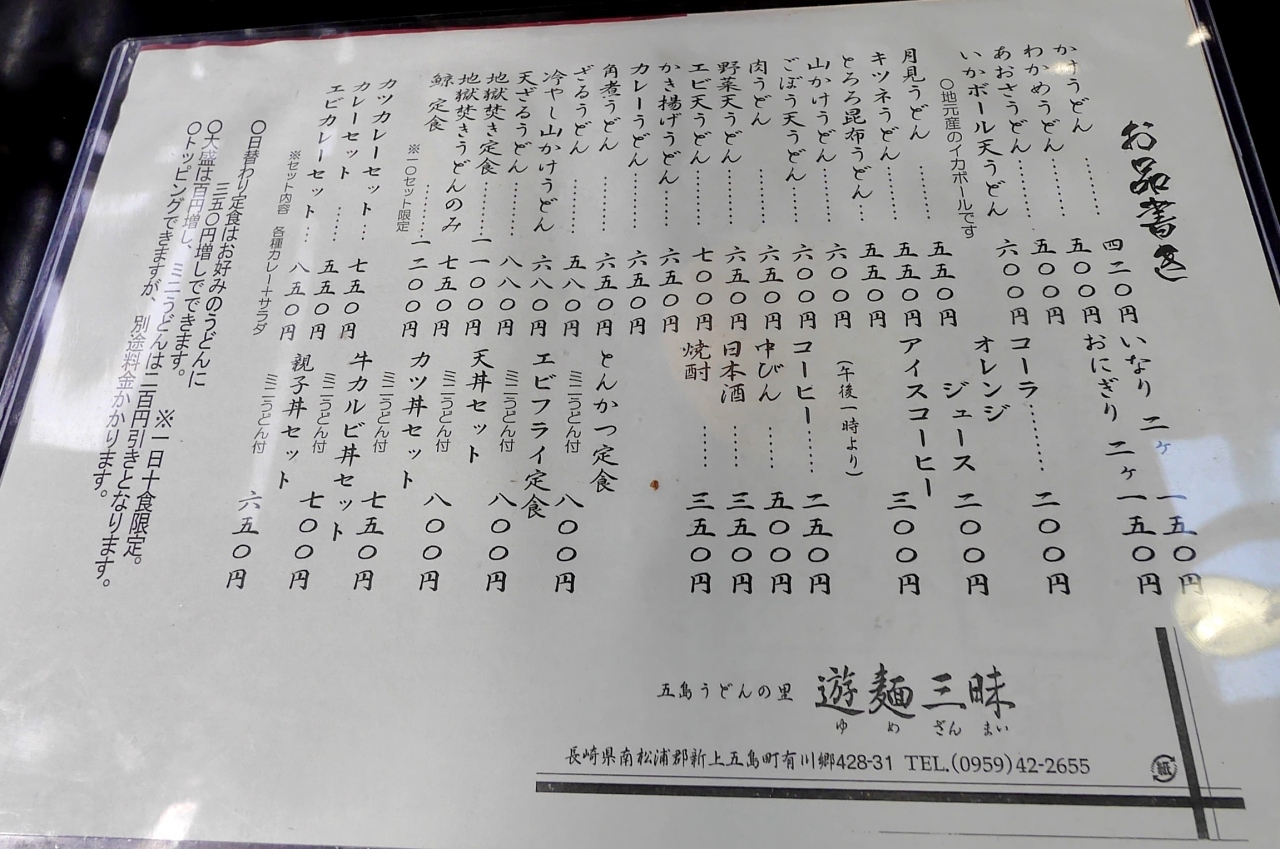 お品書き
かけうどん ……… 四二〇円
わかめうどん ……… 五〇〇円
あおさうどん ……… 五〇〇円
いかボール天うどん 六〇〇円
○地元産のイカボールです
月見うどん ……… 五五〇円
キツネうどん ……… 五五〇円
とろろ昆布うどん … 五五〇円
山かけうどん ……… 六〇〇円
ごぼう天うどん …… 六〇〇円
肉うどん ……… 六五〇円
野菜天うどん ……… 六五〇円
エビ天うどん ……… 七〇〇円
かき揚げうどん …… 六五〇円
カレーうどん ……… 六五〇円
角煮うどん ……… 六五〇円
ざるうどん ……… 五八〇円
冷やし山かけうどん 六八〇円
天ざるうどん ……… 八八〇円
地獄焚き定食 …… 一〇〇〇円
地獄焚きうどんのみ 七五〇円
鯨 定食 ……… 一二〇〇円
※一〇セット限定
カツカレーセット … 七五〇円
カレーセット …… 五五〇円
エビカレーセット … 八五〇円
※セット内容 各種カレー+サラダ
いなり 二ヶ 一五〇円
おにぎり 二ヶ 一五〇円
コーラ ……… 二〇〇円
オレンジ
ジュース 二〇〇円
アイスコーヒー 三〇〇円
(午後一時より)
コーヒー …… 二五〇円
中びん …… 五〇〇円
日本酒 …… 三五〇円
焼酎 …… 三五〇円
とんかつ定食 八〇〇円
ミニうどん付
エビフライ定食 八〇〇円
ミニうどん付
天丼セット 八〇〇円
ミニうどん付
カツ丼セット 七五〇円
ミニうどん付
牛カルビ丼セット 七〇〇円
ミニうどん付
親子丼セット 六五〇円
ミニうどん付
○日替わり定食はお好みのうどんに
三五〇円増しでできます。 ※一日十食限定。
○大盛は百円増し、ミニうどんは二百円引きとなります。
○トッピングできますが、別途料金かかります。
五島うどんの里 遊麺三昧
ゆ め ざん まい
長崎県南松浦郡新上五島町有川郷428-31 TEL.(0959)42-2655
紙